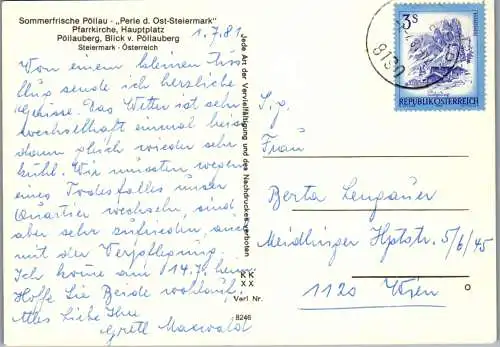 Sommerfrische Pöllau - „Perle d. Ost-Steiermark"
Pfarrkirche, Hauptplatz
Pöllauberg, Blick v. Pöllauberg
Steiermark - Österreich
1.7.81
Von einem kleinen
flug sende ich herzliche
Grüsse. Das Wetter ist sehr
wechselhaft einmal heiss
dann gleich wieder sehr
kühl. Wir mussten wegen
eines Todesfalles unser
Quartier wechseln, sind
aber sehr zufrieden, auch
mit der Verpflegung.
Ich komme am 14.7. heim
Hoffe Sie Beide wohlauf,
Alles Liebe Ihre
Grete
Jede Art der Vervielfältigung und des Nachdruckes verboten
KK
XX
Verl Nr.
8246
3S
REPUBLIK ÖSTERREICH
8190
S.g.
Frau
Berta Lengauer
Meidlinger Hptstr. 5/6/45
1120 Wien